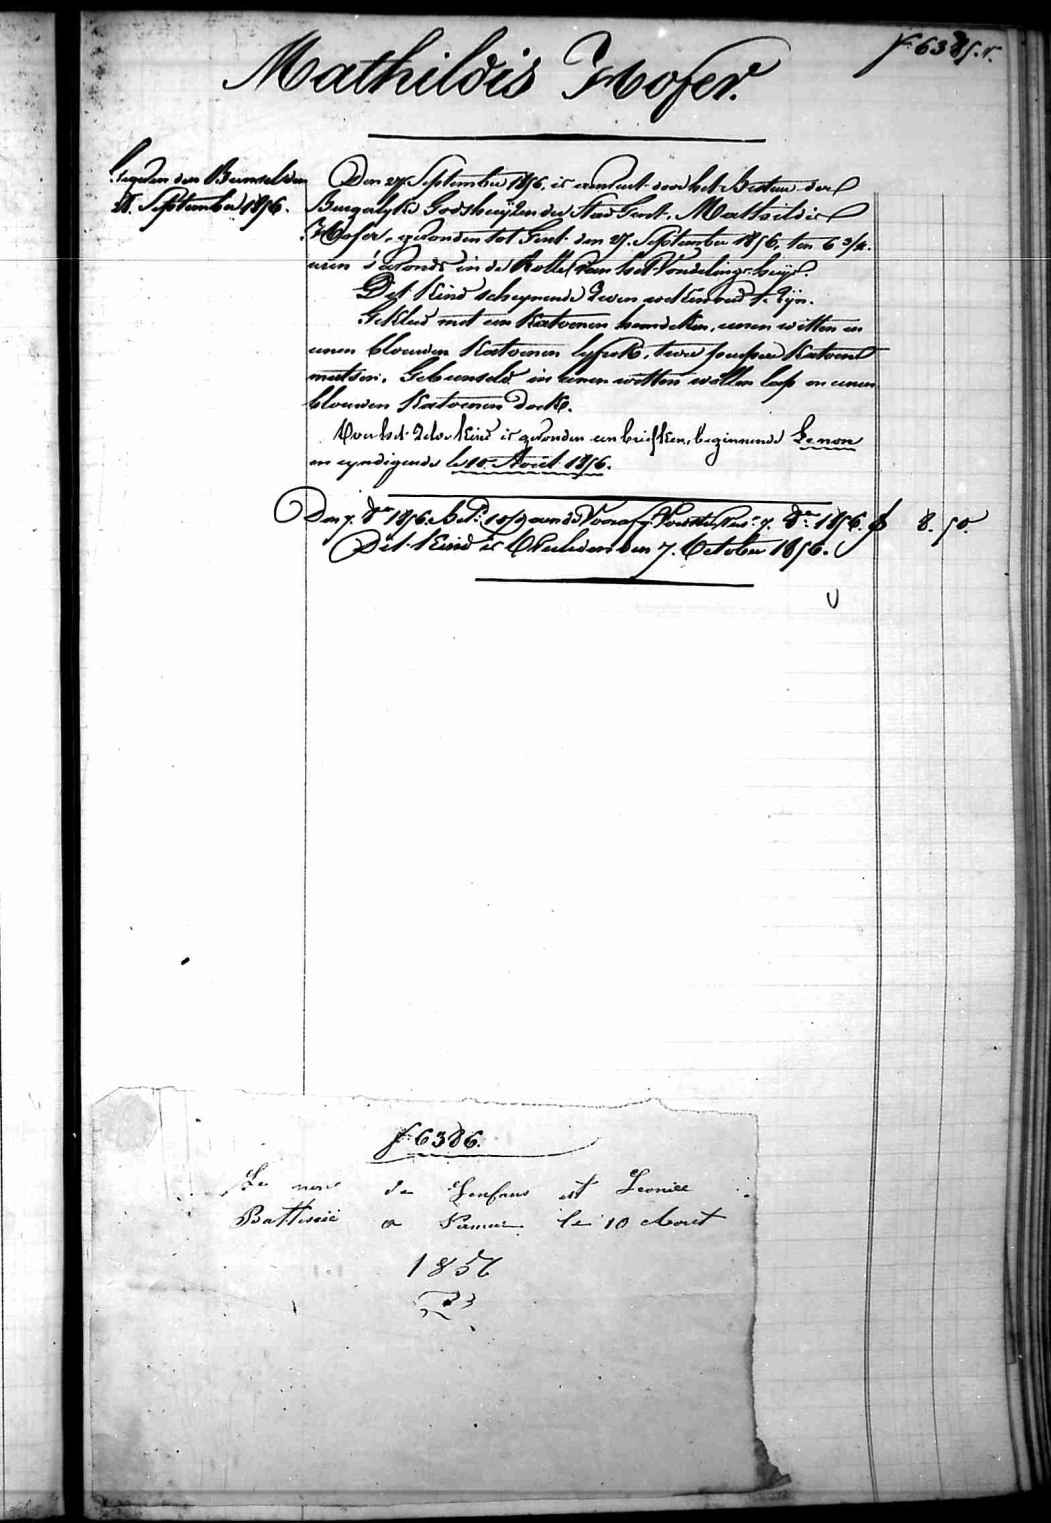 Mathildis Hofer.
f° 6385. v.
den
28. September 1856.
Den 27. September 1856. is door het Bestuur der
Burgerlyke Godshuyzen der Stad Gent. Mathildis
Hofer, gevonden tot Gent den 27. September 1856, ten 6 3/4.
uren 's avonds in de Rolle van het Vondelings-huys.
Dit Kind schynende zeven weken oud te zyn.
Gekleed met een Katoenen hemdeken, eenen witten en
eenen blauwen Katoenen lyfrok, twee Katoene
mutsen. Gebunseld in eenen witten wollen lap en eenen
blauwen Katoenen doek.
Over het zelve kind is gevonden een briefken, beginnende Le nom
en eyndigende le 10 Août 1856.
Den 7. 8er 1856. 7. 8er 1856. f 8. 50.
Dit Kind is Overleden den 7. October 1856.
f° 6386.
Le nom de Lenfans est Leonie
Battisse a le 10 Aout
1856